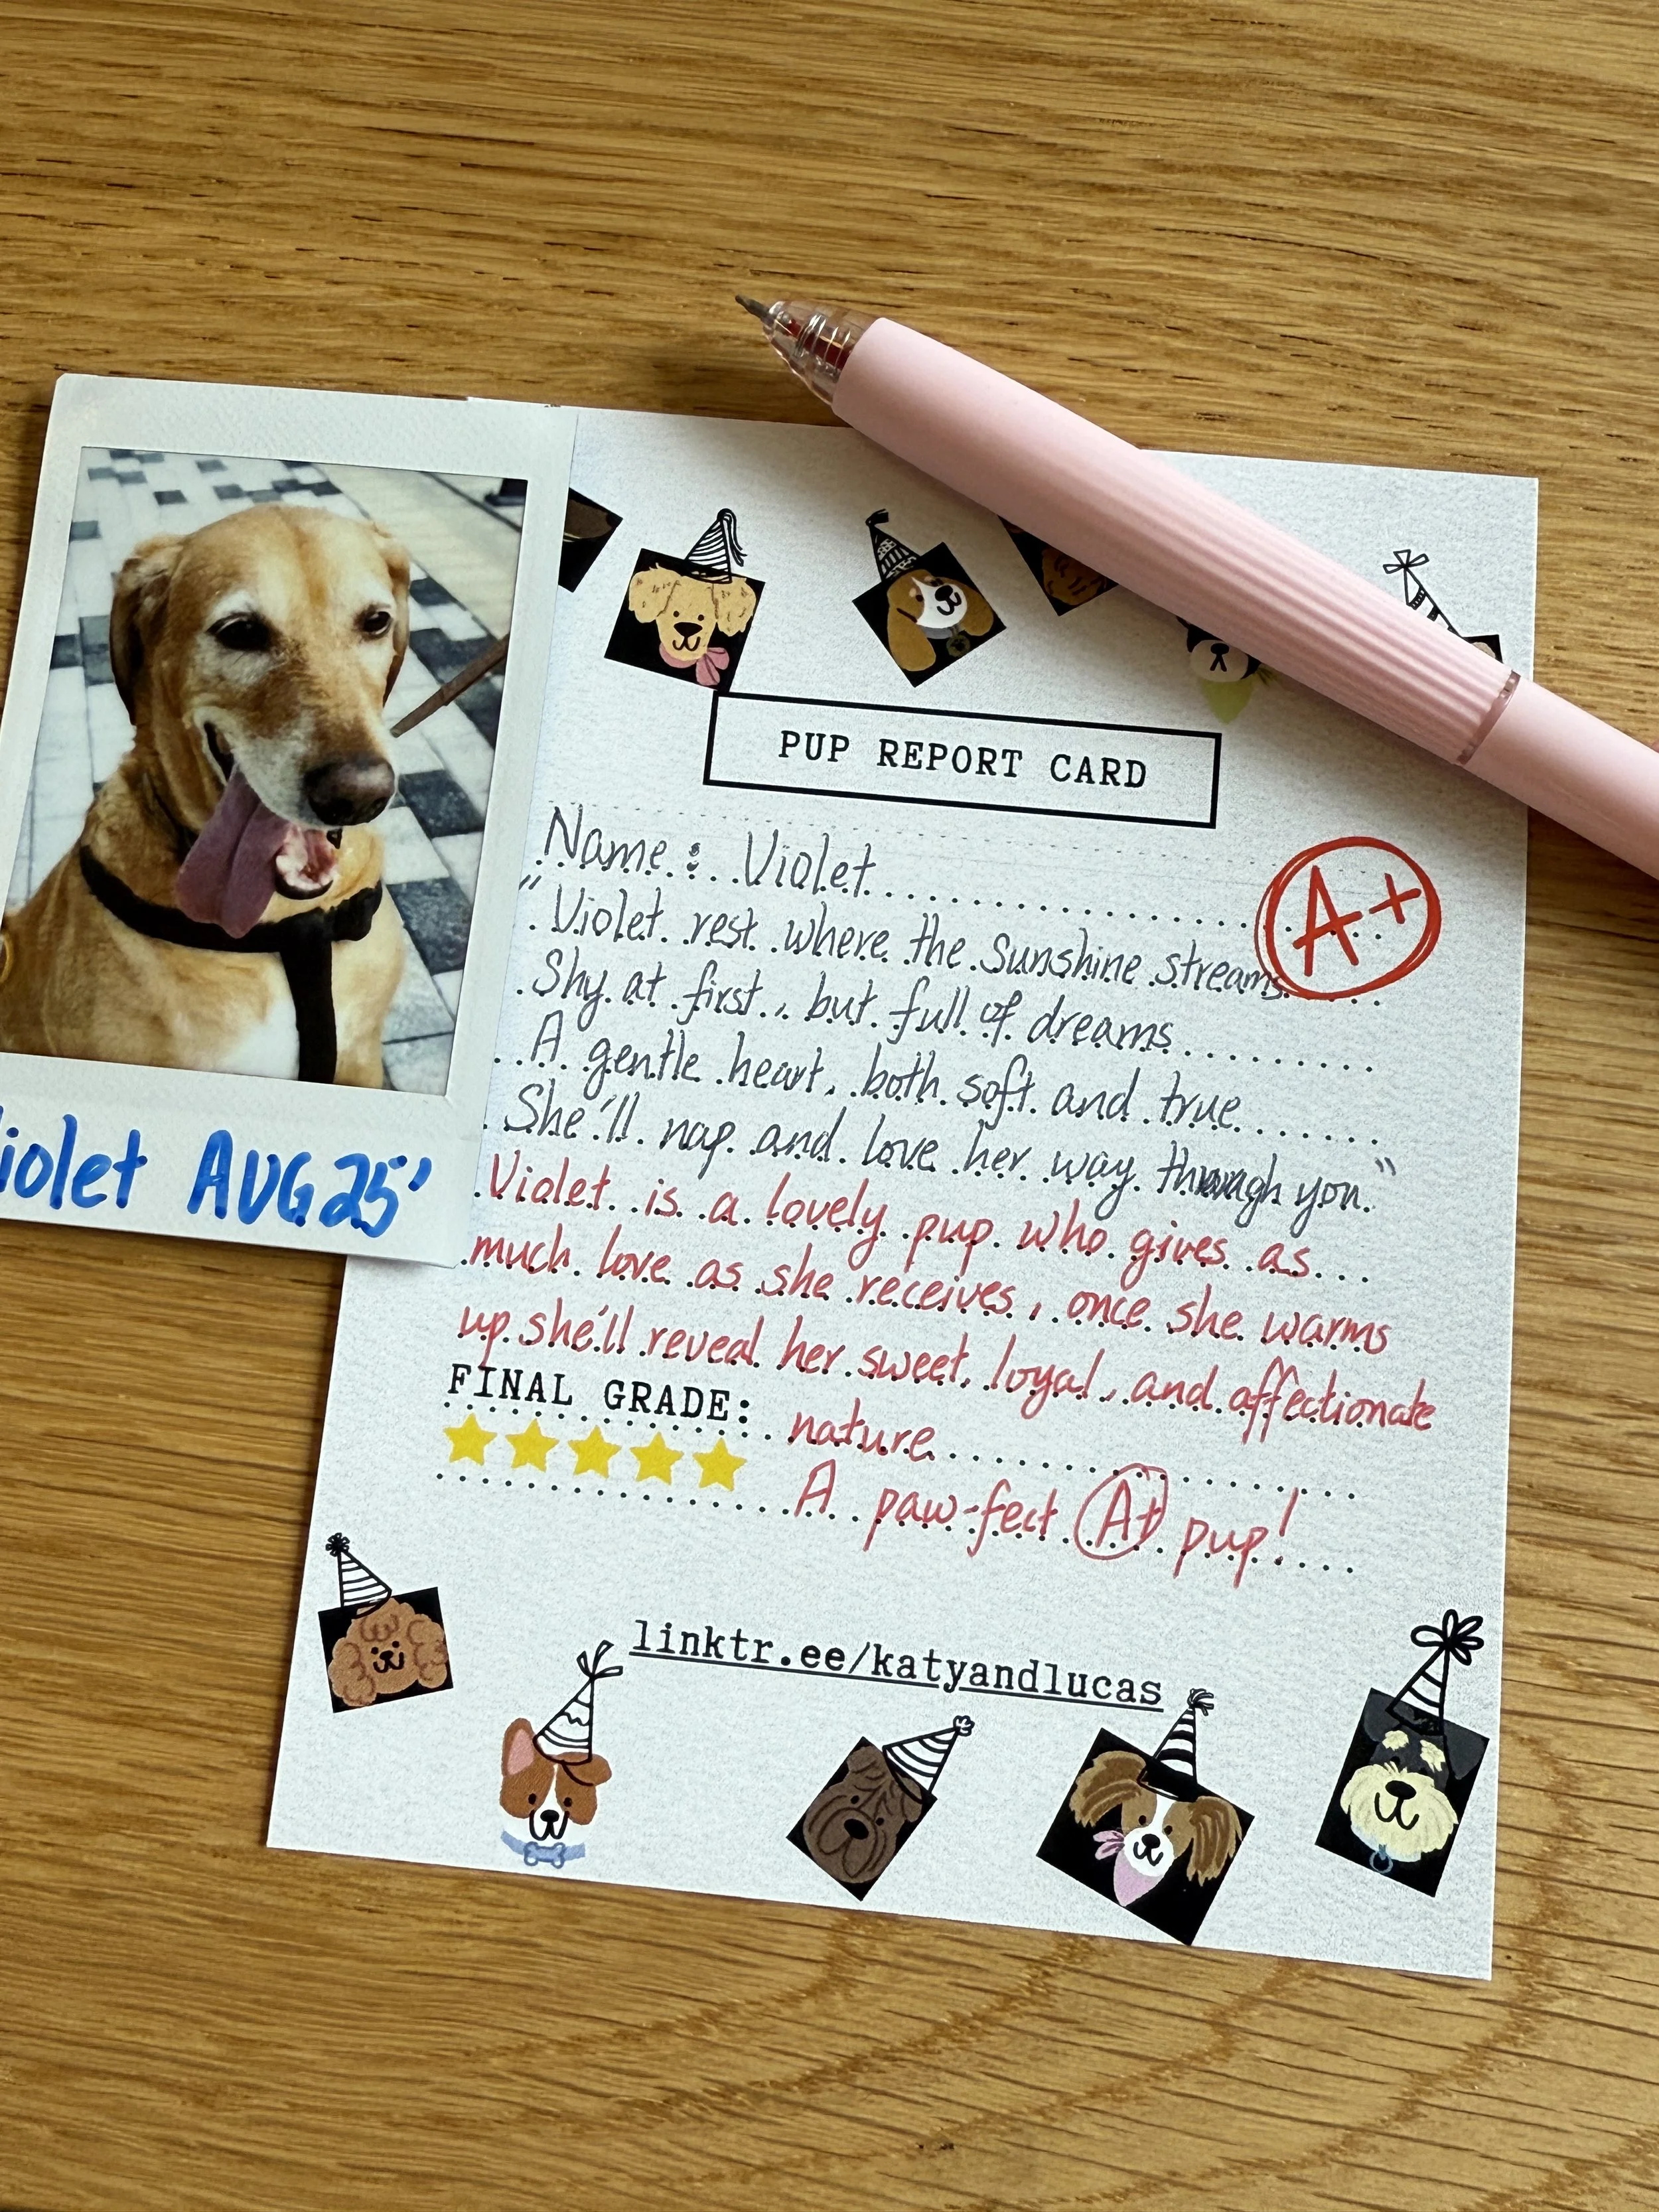 PUP REPORT CARD
Name: Violet
A+
"Violet rest where the sunshine streams
Shy at first, but full of dreams
A gentle heart, both soft and true
She'll nap and love her way through you."
Violet is a lovely pup who gives as
much love as she receives, once she warms
up she'll reveal her sweet, loyal, and affectionate
nature
FINAL GRADE:
A paw-fect A+ pup!
linktr.ee/katyandlucas
iolet AUG 25'